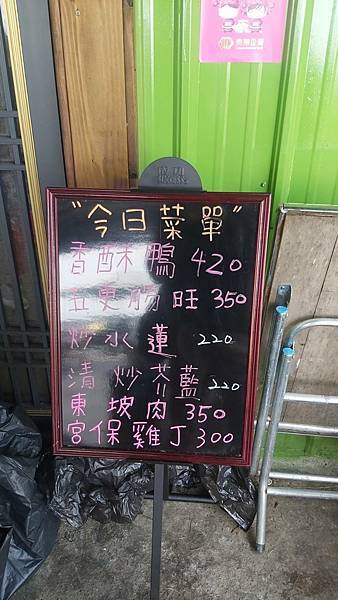 "今日菜單"
香酥鴨 420
五更腸旺 350
炒水蓮 220
清炒芥藍 220
東坡肉 350
宮保雞丁 300